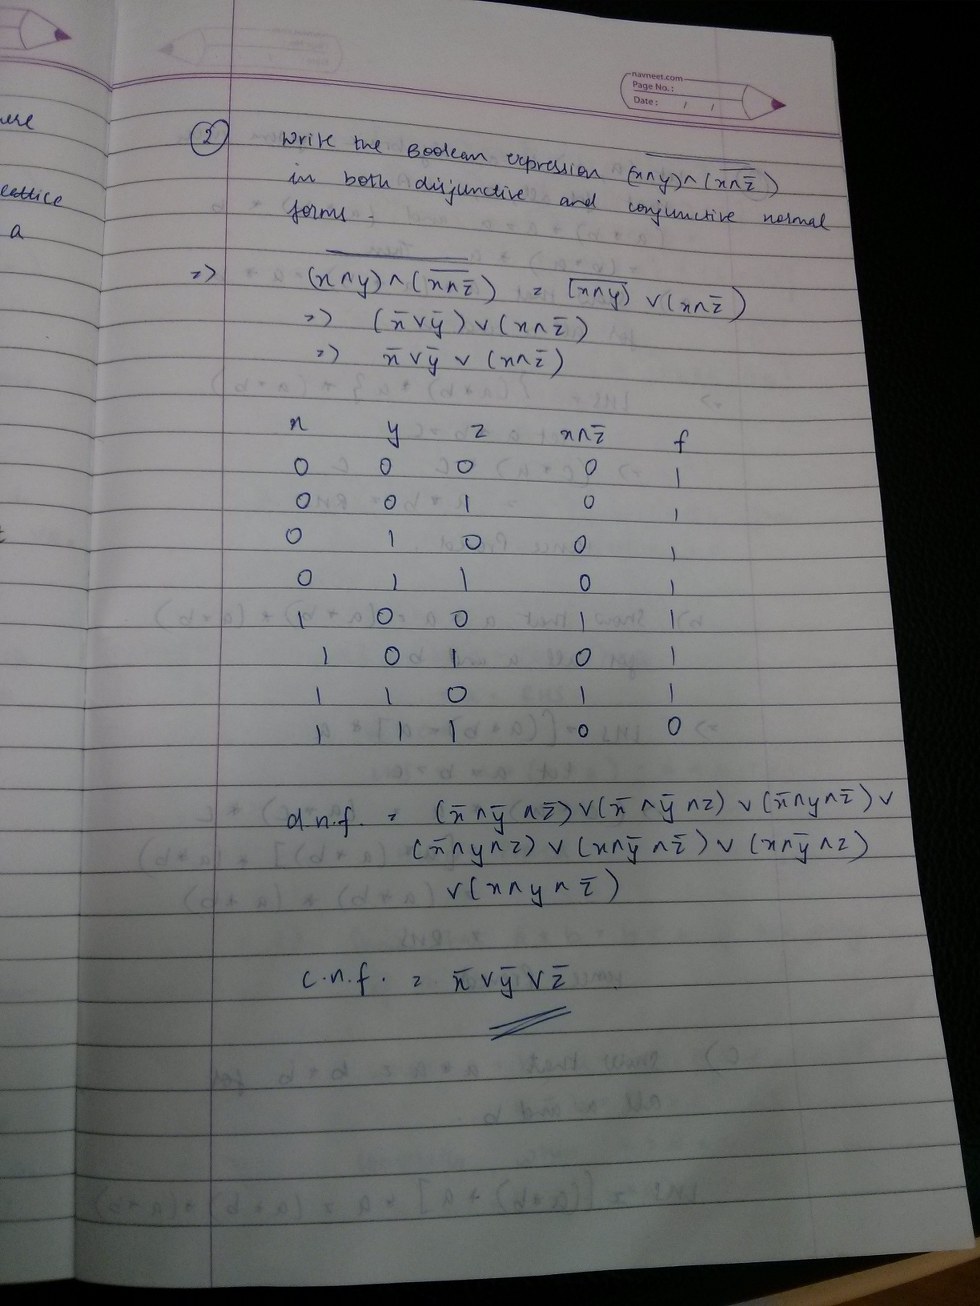 navneet.com
Page No. :
Date : / /
ere
lattice
a
② Write the Boolean expression \overline{(x∧y)∧(\overline{x∧z̄})}
in both disjunctive and conjunctive normal
forms.
=> \overline{(x∧y)∧(\overline{x∧z̄})} = \overline{(x∧y)} ∨ (x∧z̄)
=> (x̄∨ȳ) ∨ (x∧z̄)
=> x̄∨ȳ ∨ (x∧z̄)
x y z x∧z̄ f
0 0 0 0 1
0 0 1 0 1
0 1 0 0 1
0 1 1 0 1
1 0 0 1 1
1 0 1 0 1
1 1 0 1 1
1 1 1 0 0
d.n.f. = (x̄∧ȳ∧z̄)∨(x̄∧ȳ∧z)∨(x̄∧y∧z̄)∨
(x̄∧y∧z)∨(x∧ȳ∧z̄)∨(x∧ȳ∧z)
∨(x∧y∧z̄)
c.n.f. = x̄∨ȳ∨z̄